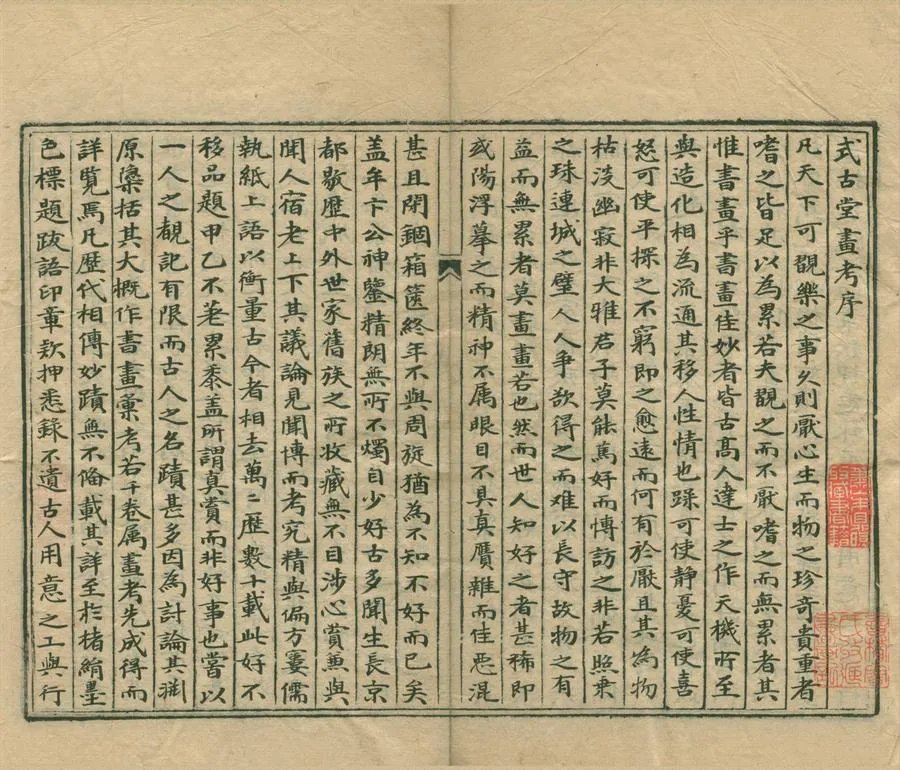 式古堂畫考序
凡天下可翫樂之事久則厭心生而物之珍奇貴重者
嗜之皆足以為累若夫翫之而不厭嗜之而無累者其
惟書畫乎書畫佳妙者皆古高人達士之作天機所至
與造化相為流通其移人性情也躁可使靜憂可使喜
怒可使平探之不窮即之愈遠而何有於厭且其為物
枯淡幽寂非大雅君子莫能篤好而博訪之非若照乗
之珠連城之璧人人爭欲得之而難以長守故物之有
益而無累者莫畫畫若也然而世人知好之者甚稀即
或陽浮摹之而精神不属眼目不具真贋雜而佳惡混
甚且閉錮箱篋終年不與周旋猶為不知不好而已矣
盖年卞公神鑒精朗無所不燭自少好古多聞生長京
都敭歷中外世家舊族之所收藏無不目涉心賞兼與
聞人宿老上下其議論見聞博而考究精與偏方窶儒
執紙上語以衡量古今者相去萬二歷數十載此好不
移品題甲乙不差累黍盖所謂真賞而非好事也嘗以
一人之覩記有限而古人之名蹟甚多因為討論其淵
原隱括其大概作書畫彙考若干卷属畫考先成得而
詳覽焉凡歷代相傳妙蹟無不備載其詳至於楮絹墨
色標題跋語印章欵押悉錄不遺古人用意之工與行